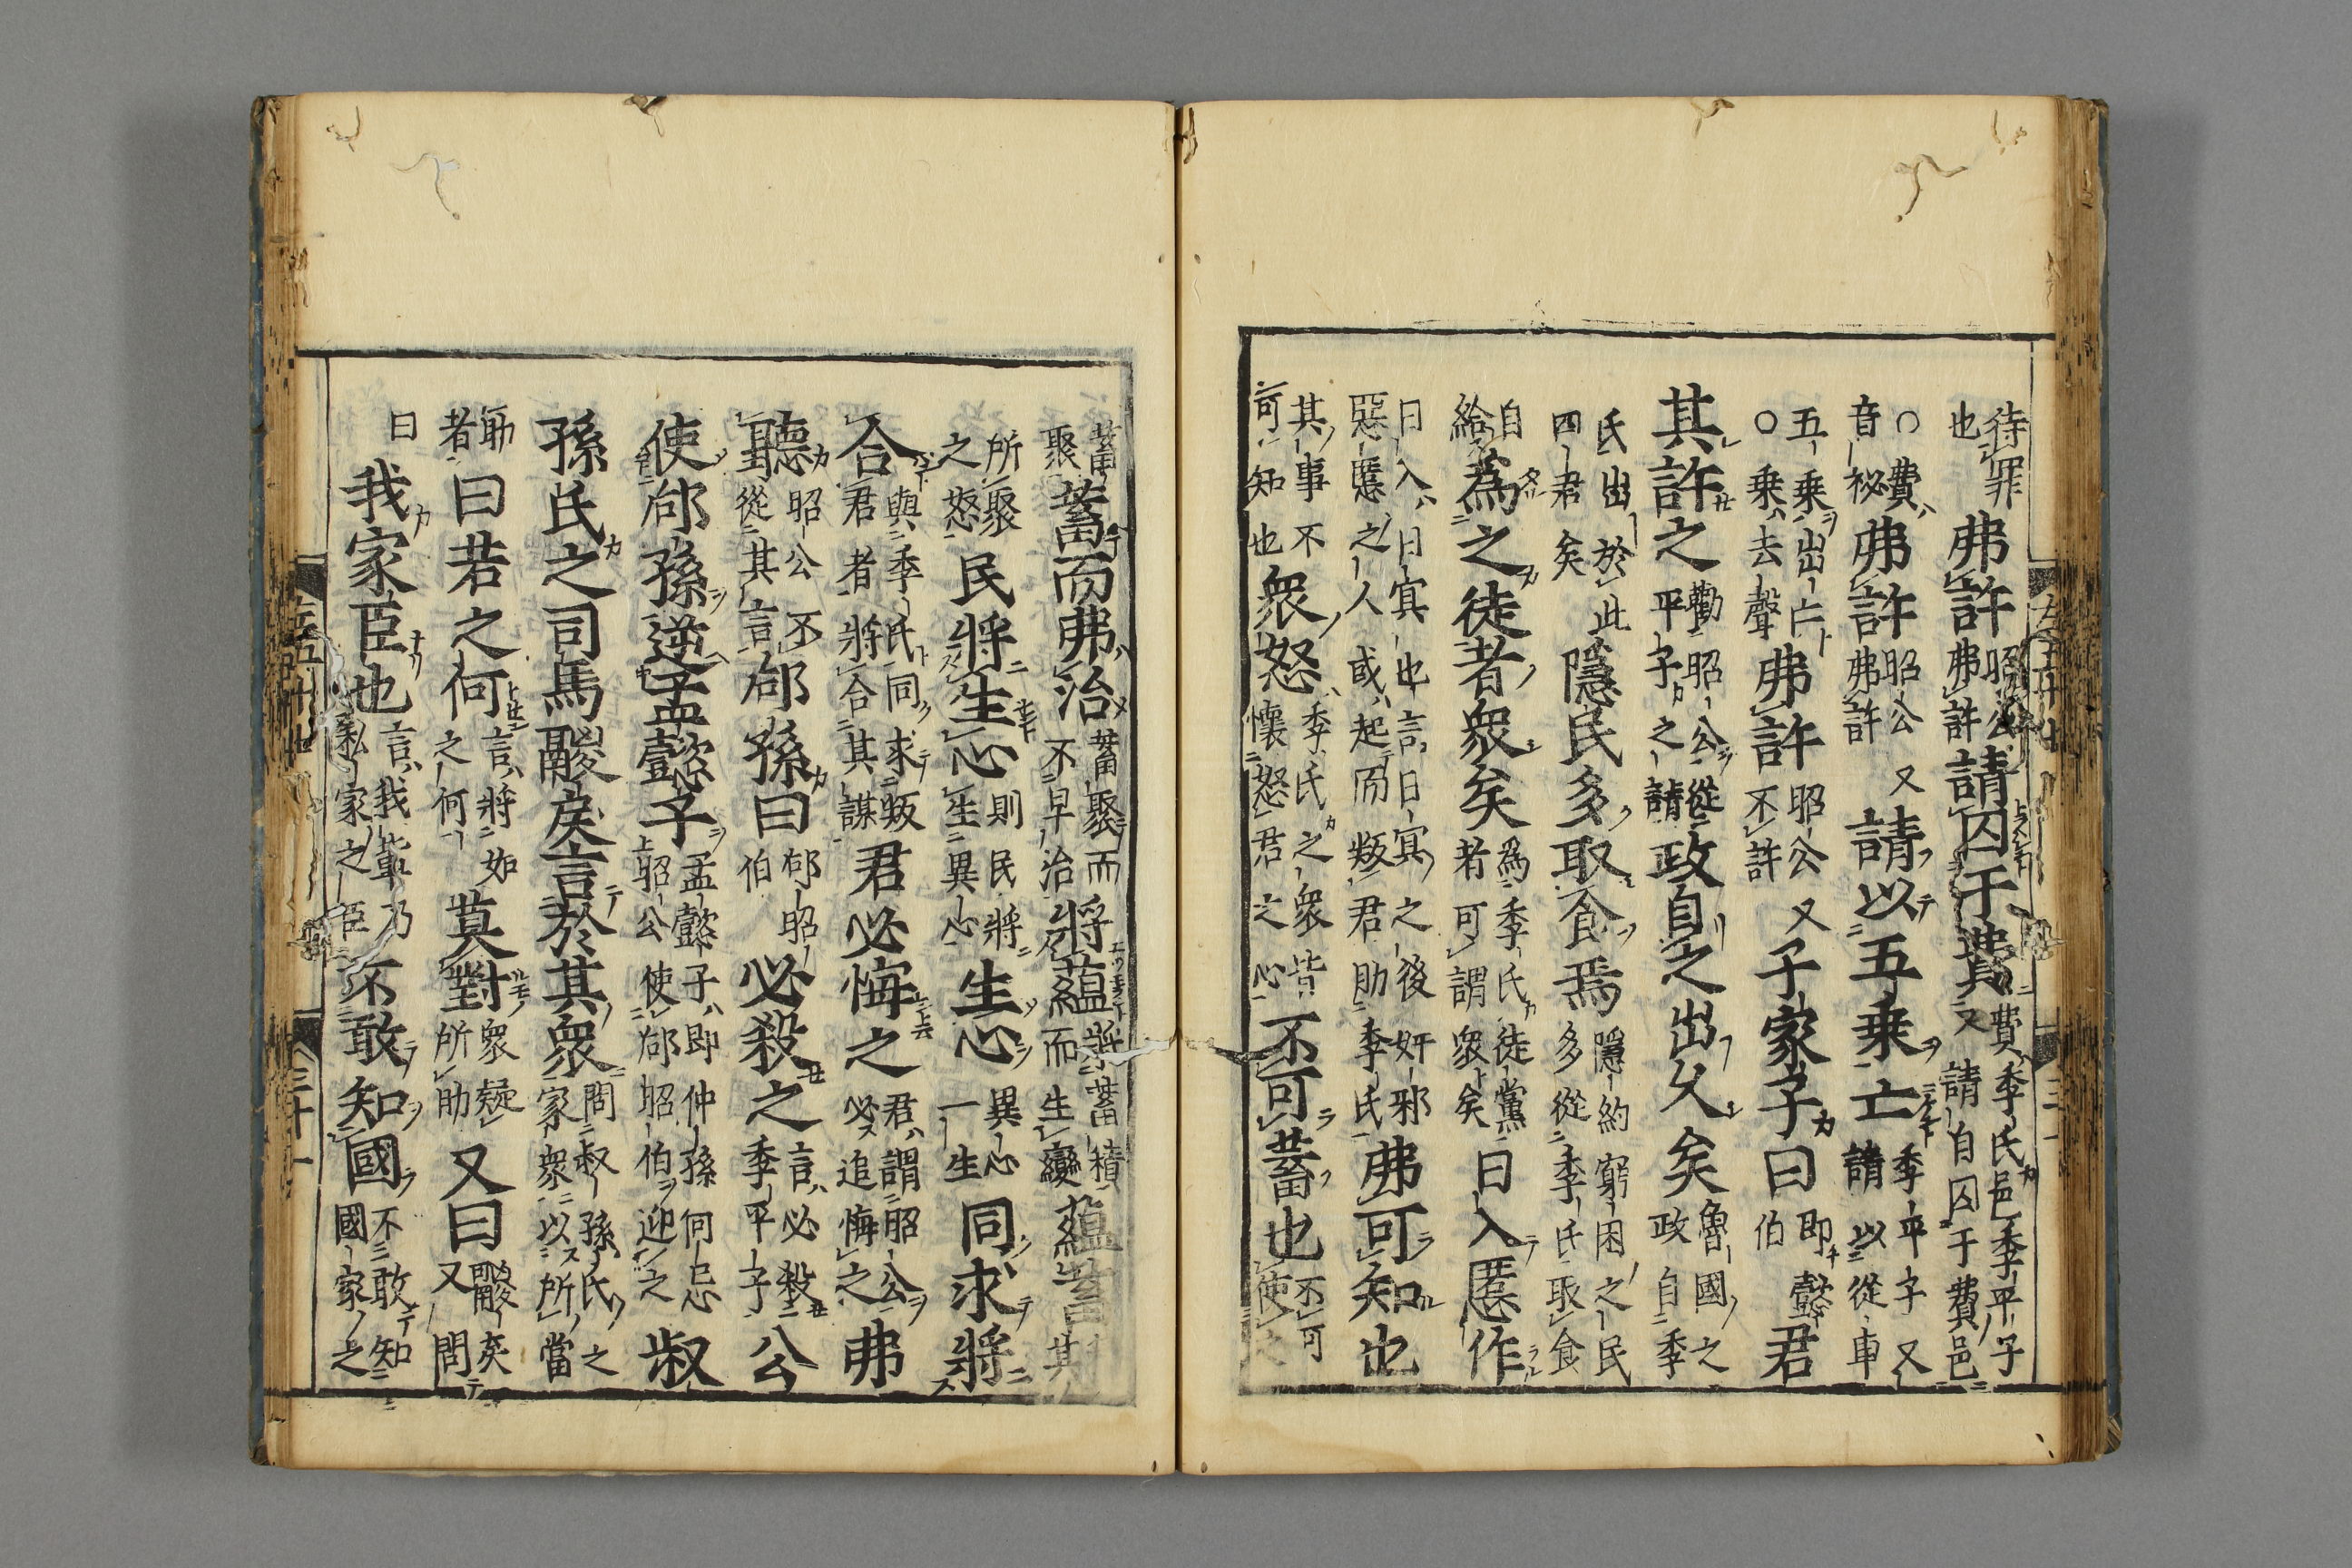 待罪也弗許昭公弗許請囚于費費季氏邑季平子又請自囚于費邑
○費音秘弗許昭公又弗許請以五乗亡季平子又請以從車
五乗出亡○乗去聲弗許昭公又不許子家子曰即懿伯君
其許之勸昭公從平子之請政自之出久矣魯國之政自季
氏出於此四君矣隱民多取食焉隱約窮困之民多從季氏取食
自給為之徒者衆矣爲季氏徒黨者可謂衆矣曰入慝作
曰入曰㝠也言曰㝠之後奸邪惡慝之人或起而叛君助季氏弗可知也
其事不可知也衆怒季氏之衆皆懷怒君之心不可蓄也不可使
蓄聚蓄而弗治蓄聚而不早治將蘊將蓄積而生變蘊蓄其
所聚之怒民將生心則民將生異心生心異心一生同求將
合與季氏同求叛君者將合其謀君必悔之君謂昭公必追悔之弗
聽昭公不從其言郈孫曰郈昭伯必殺之言必殺季平子公
使郈孫逆孟懿子孟懿子即仲孫何忌昭公使郈昭伯迎之叔
孫氏之司馬鬷戾言於其衆問叔孫氏之家衆以所當
助者曰若之何言將如之何莫對衆疑所助又曰鬷戾又問
曰我家臣也言我輩乃私家之臣不敢知國不敢知國家之
三十一